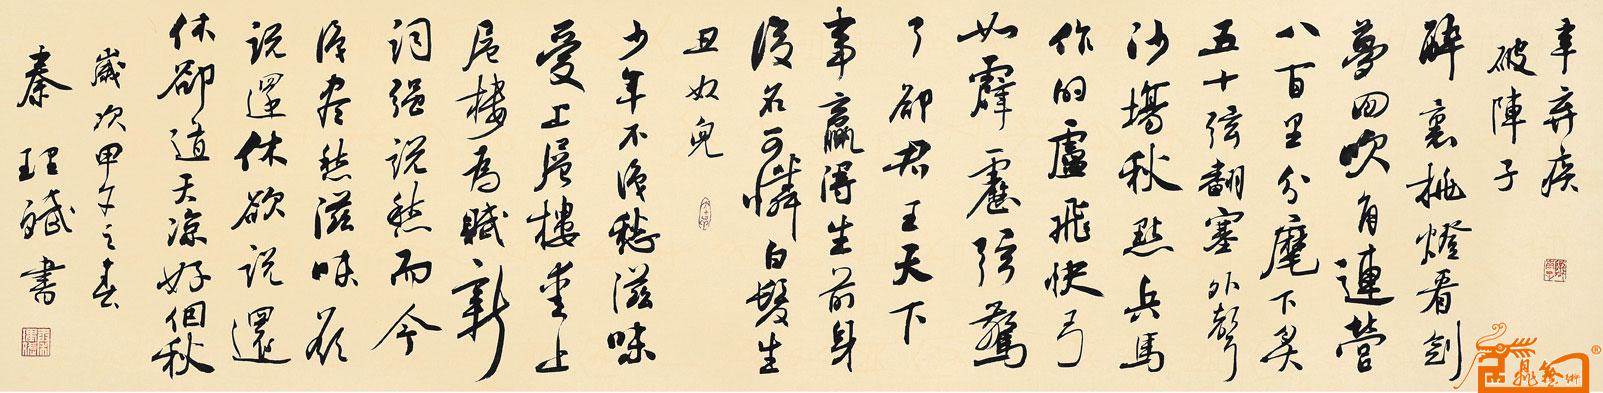 辛弃疾
破陣子
醉裏挑燈看劍
夢回吹角連營
八百里分麾下炙
五十弦翻塞外聲
沙場秋點兵馬
作的盧飛快弓
如霹靂弦驚
了卻君王天下
事贏得生前身
後名可憐白髮生
丑奴兒
少年不識愁滋味
愛上層樓愛上
層樓為賦新
詞强說愁而今
識盡愁滋味欲
說還休欲說還
休卻道天涼好個秋
歲次甲午之春
秦理斌書